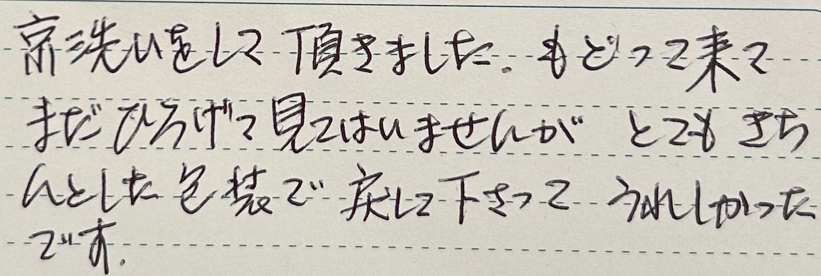 京洗いをして頂きました。もどって来て
まだひろげて見てはいませんが とても きち
んとした包装で 戻して下さって うれしかった
です.